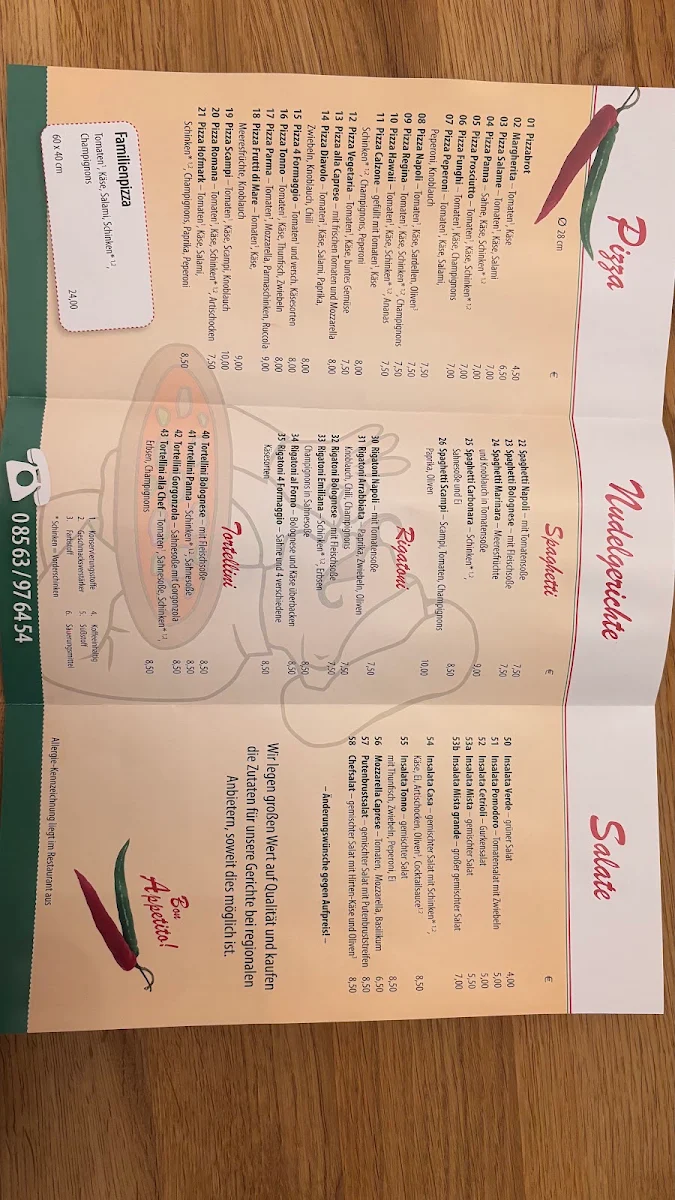 Pizza
Ø 28 cm
€
01 Pizzabrot
02 Margherita – Tomaten¹, Käse 4,50
03 Pizza Salame – Tomaten¹, Käse, Salami 6,50
04 Pizza Panna – Sahne, Käse, Schinken* ¹,² 7,00
05 Pizza Prosciutto – Tomaten¹, Käse, Schinken* ¹,² 7,00
06 Pizza Funghi – Tomaten¹, Käse, Champignons 7,00
07 Pizza Peperoni – Tomaten¹, Käse, Salami, 7,00
Peperoni, Knoblauch
08 Pizza Napoli – Tomaten¹, Käse, Sardellen, Oliven³ 7,50
09 Pizza Regino – Tomaten¹, Käse, Schinken* ¹,², Champignons 7,50
10 Pizza Hawaii – Tomaten¹, Käse, Schinken* ¹,², Ananas 7,50
11 Pizza Calzone – gefüllt mit Tomaten¹, Käse 7,50
Schinken* ¹,², Champignons, Peperoni 8,00
12 Pizza Vegetaria – Tomaten¹, Käse, buntes Gemüse 7,50
13 Pizza alla Caprese – mit frischen Tomaten und Mozzarella 8,00
14 Pizza Diavolo – Tomaten¹, Käse, Salami, Paprika,
Zwiebeln, Knoblauch, Chili 8,00
15 Pizza 4 Formaggio – Tomaten¹ und versch. Käsesorten 8,00
16 Pizza Tonno – Tomaten¹, Käse, Thunfisch, Zwiebeln 8,00
17 Pizza Parma – Tomaten¹, Mozzarella, Parmaschinken, Ruccola 9,00
18 Pizza Frutti di Mare – Tomaten¹, Käse,
Meeresfrüchte, Knoblauch 9,00
19 Pizza Scampi – Tomaten¹, Käse, Scampi, Knoblauch 10,00
20 Pizza Romana – Tomaten¹, Käse, Schinken* ¹,², Artischocken 7,50
21 Pizza Hofmark – Tomaten¹, Käse, Salami,
Schinken* ¹,², Champignons, Paprika, Peperoni 8,50
Familienpizza
Tomaten¹, Käse, Salami, Schinken* ¹,²,
Champignons 24,00
60 x 40 cm
Nudelgerichte
Spaghetti
€
22 Spaghetti Napoli – mit Tomatensoße 7,50
23 Spaghetti Bolognese – mit Fleischsoße 7,50
24 Spaghetti Marinara – Meeresfrüchte
und Knoblauch in Tomatensoße 9,00
25 Spaghetti Carbonara – Schinken* ¹,²,
Sahnesoße und Ei 8,50
26 Spaghetti Scampi – Scampi, Tomaten, Champignons
Paprika, Oliven 10,00
Rigatoni
30 Rigatoni Napoli – mit Tomatensoße 7,50
31 Rigatoni Arrabbiata – Paprika, Zwiebeln, Oliven
Knoblauch, Chili, Champignons 7,50
32 Rigatoni Bolognese – mit Fleischsoße 7,50
33 Rigatoni Emiliana – Schinken* ¹,², Erbsen
Champignons in Sahnesoße 8,50
34 Rigatoni al Forno – Bolognese und Käse überbacken 8,50
35 Rigatoni 4 Formaggio – Sahne und 4 verschiedene
Käsesorten 8,50
Tortellini
40 Tortellini Bolognese – mit Fleischsoße 8,50
41 Tortellini Panna – Schinken* ¹,², Sahnesoße 8,50
42 Tortellini Gorgonzola – Sahnesoße mit Gorgonzola 8,50
43 Tortellini alla Chef – Tomaten¹, Sahnesoße, Schinken* ¹,²,
Erbsen, Champignons 8,50
Konservierungsstoffe 4. Koffeinhaltig
2. Geschmacksverstärker 5. Süßstoff
3. Farbstoff 6. Säuerungsmittel
* Schinken = Vorderschinken
0 85 63 / 97 64 54
Salate
€
50 Insalata Verde – grüner Salat 4,00
51 Insalata Pomodoro – Tomatensalat mit Zwiebeln 5,00
52 Insalata Cetrioli – Gurkensalat 5,00
53a Insalata Mista – gemischter Salat 5,50
53b Insalata Mista grande – großer gemischter Salat 7,00
54 Insalata Casa – gemischter Salat mit Schinken* ¹,²,
Käse, Ei, Artischocken, Oliven³, Cocktailsauce¹,² 8,50
55 Insalata Tonno – gemischter Salat
mit Thunfisch, Zwiebeln, Peperoni, Ei 8,50
56 Mozzarella Caprese – Tomaten, Mozzarella, Basilikum 6,50
57 Putenbrustsalat – gemischter Salat mit Putenbruststreifen 8,50
58 Chefsalat – gemischter Salat mit Hirten-Käse und Oliven³ 8,50
– Änderungswünsche gegen Aufpreis! –
Wir legen großen Wert auf Qualität und kaufen
die Zutaten für unsere Gerichte bei regionalen
Anbietern, soweit dies möglich ist.
Bon
Appetito!
Allergie-Kennzeichnung liegt im Restaurant aus